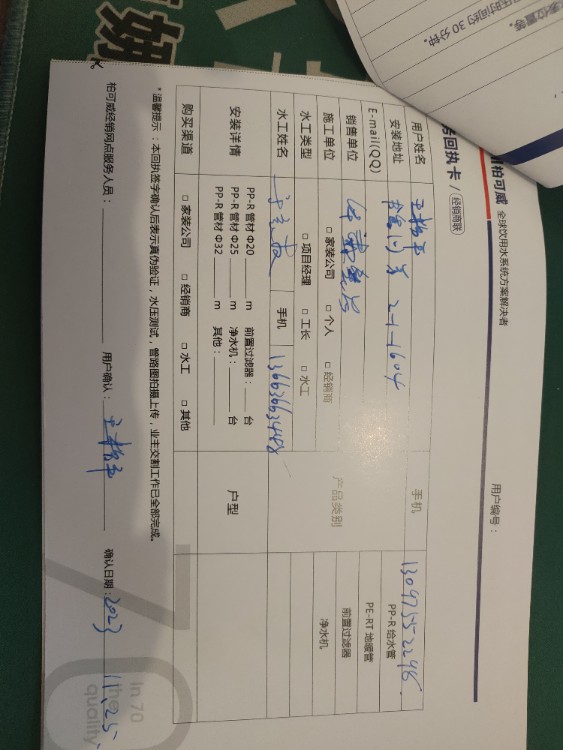 柏可威 全球饮用水系统方案解决者
回执卡 / 经销商联
用户编号：
用户姓名 手机 1309755-2296
安装地址 2-1-1604
E-mail(QQ) 产品类别 PP-R 给水管
销售单位 PE-RT 地暖管
施工单位 □ 家装公司 □ 个人 □ 经销商 前置过滤器
水工类型 □ 项目经理 □ 工长 □ 水工 净水机
水工姓名 手机 13663663488
安装详情 PP-R 管材 Φ20 m 前置过滤器： 台 户型
PP-R 管材 Φ25 m 净水机： 台
PP-R 管材 Φ32 m 其他：
购买渠道 □ 家装公司 □ 经销商 □ 水工 □ 其他
*温馨提示：本回执签字确认后表示真伪验证，水压测试，管路图拍摄上传，业主交割工作已全部完成。
柏可威经销网点服务人员： 用户确认： 确认日期：2023 11.25
In 70
the
quality
压时间约 30 分钟。
位置等。